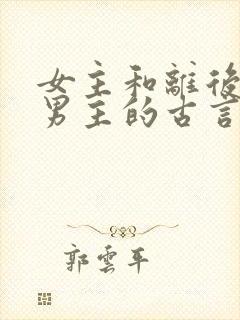 女主和離後
男主的古言
郭雲平